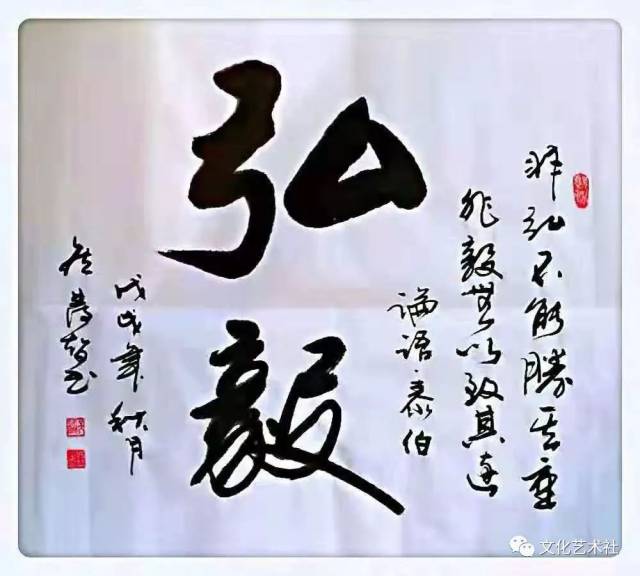 弘毅
非弘不能勝其重
非毅無以致其遠
論語·泰伯
戊戌年秋月
書
文化艺术社